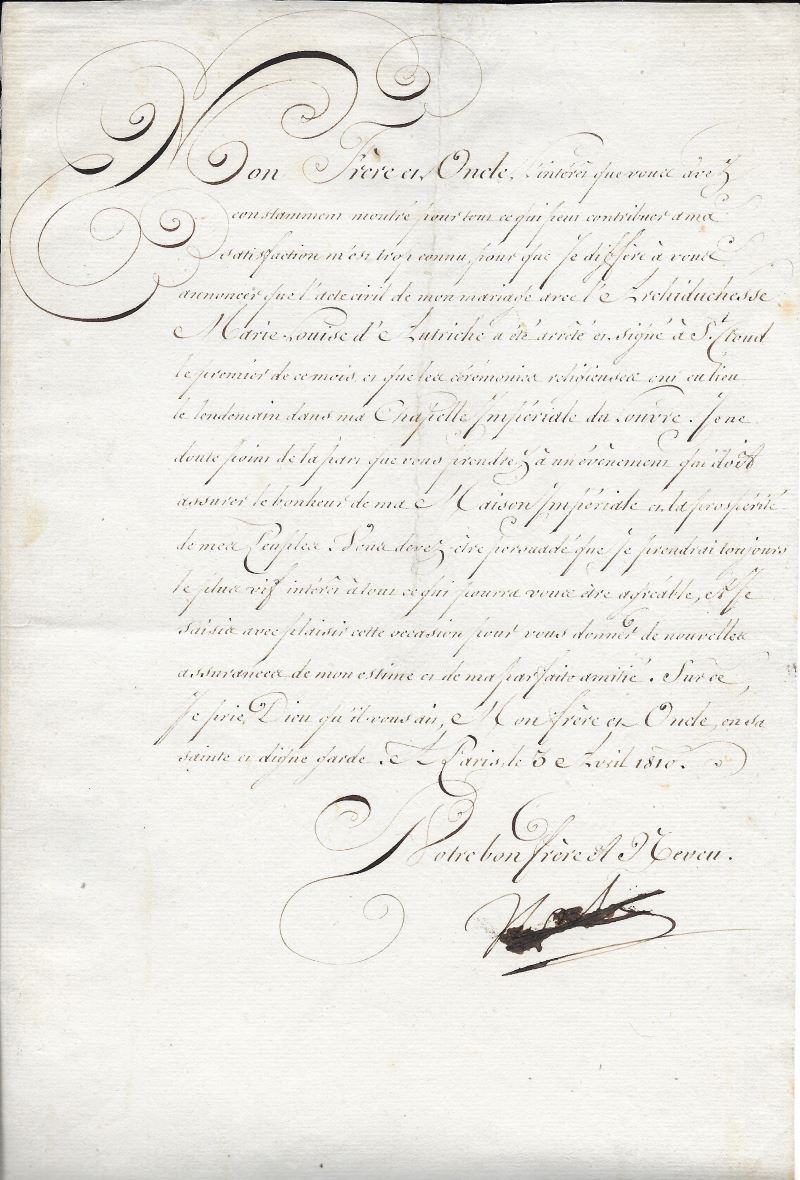 Mon Frère et Oncle, l'intérêt que vous avez
constamment montré pour tout ce qui peut contribuer à ma
satisfaction m'est trop connu, pour que Je diffère à vous
annoncer que l'acte civil de mon mariage avec l'Archiduchesse
Marie-Louise d'Autriche a été arrêté et signé à St. Cloud
le premier de ce mois, et que les cérémonies religieuses ont eu lieu
le lendemain dans ma Chapelle Impériale du Louvre. Je ne
doute point de la part que vous prendrez à un évènement qui doit
assurer le bonheur de ma Maison Impériale et la prospérité
de mes Peuples. Vous devez être persuadé que je prendrai toujours
le plus vif intérêt à tout ce qui pourra vous être agréable, et Je
saisis avec plaisir cette occasion pour vous donner de nouvelles
assurances de mon estime et de ma parfaite amitié. Sur ce,
Je prie Dieu qu'il vous ait, Mon frère et Oncle, en sa
sainte et digne garde. A Paris, le 3 Avril 1810.
Votre bon frère et Neveu.